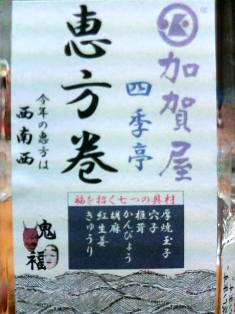 加賀屋
四季亭
恵方巻
今年の恵方は
西南西
福を招く七つの具材
厚焼玉子
穴子
椎茸
かんぴょう
胡麻
紅生姜
きゅうり
鬼
福